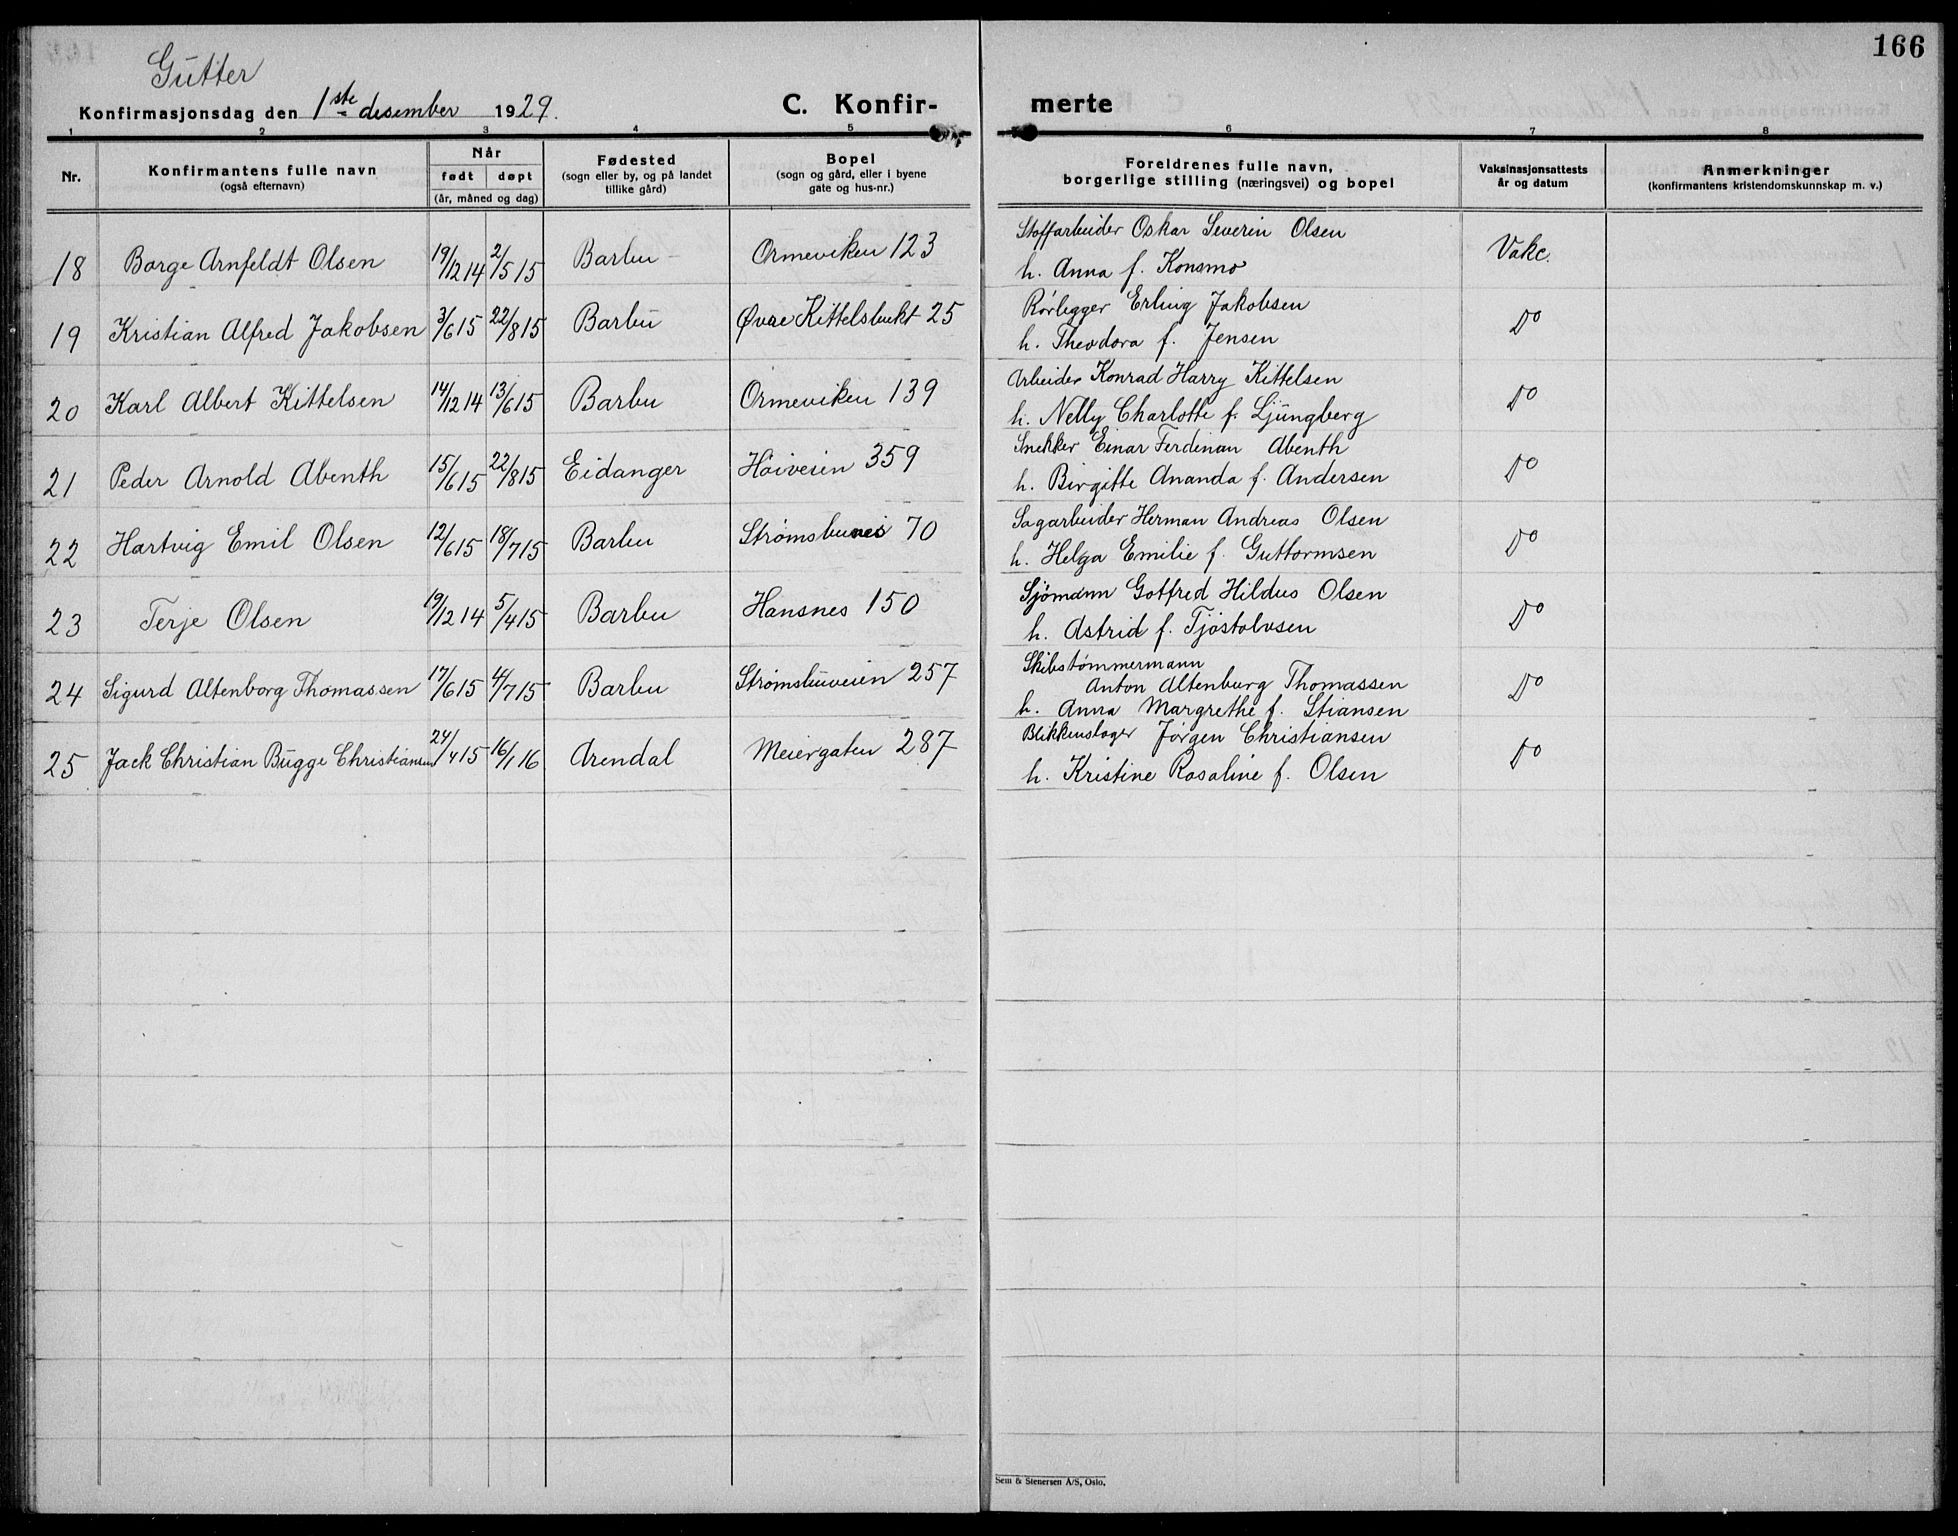 166
Gutter
Konfirmasjonsdag den 1ste desember 1929.
C. Konfir- merte
1 2 3 4 5 6 7 8
Nr.
Konfirmantens fulle navn
(også efternavn)
Når
født døpt
(år, måned og dag)
Fødested
(sogn eller by, og på landet
tillike gård)
Bopel
(sogn og gård, eller i byene
gate og hus-nr.)
Foreldrenes fulle navn,
borgerlige stilling (næringsvei) og bopel
Vaksinasjonsattests
år og datum
Anmerkninger
(konfirmantens kristendomskunnskap m. v.)
18 Borge Arnfeldt Olsen 19/12 14 2/5 15 Barbu Ormeviken 123
Stoffarbeider Oskar Severin Olsen
h. Anna f. Konsmo
Vakc.
19 Kristian Alfred Jakobsen 3/6 15 22/8 15 Barbu Øvre Kittelsbukt 25
Rørlegger Erling Jakobsen
h. Theodora f. Jensen
Do
20 Karl Albert Kittelsen 14/12 14 13/6 15 Barbu Ormeviken 139
Arbeider Konrad Harry Kittelsen
h. Nelly Charlotte f. Ljungberg
Do
21 Peder Arnold Abenth 15/6 15 22/8 15 Eidanger Høiveien 359
Snekker Einar Ferdinan Abenth
h. Birgitte Ananda f. Andersen
Do
22 Hartvig Emil Olsen 12/6 15 18/7 15 Barbu Strømsbunes 70
Sagarbeider Herman Andreas Olsen
h. Helga Emilie f. Guttormsen
Do
23 Terje Olsen 19/12 14 5/4 15 Barbu Hansnes 150
Sjømann Gotfred Hildus Olsen
h. Astrid f. Tjøstolvsen
Do
24 Sigurd Altenborg Thomassen 17/6 15 4/7 15 Barbu Strømsbuveien 257
Skibstømmermann
Anton Altenburg Thomassen
h. Anna Margrethe f. Stiansen
Do
25 Jack Christian Bugge Christiansen 24/4 15 16/1 16 Arendal Meiergaten 287
Blikkenslager Jørgen Christiansen
h. Kristine Rosaline f. Olsen
Do
Sem & Stenersen A/S, Oslo.